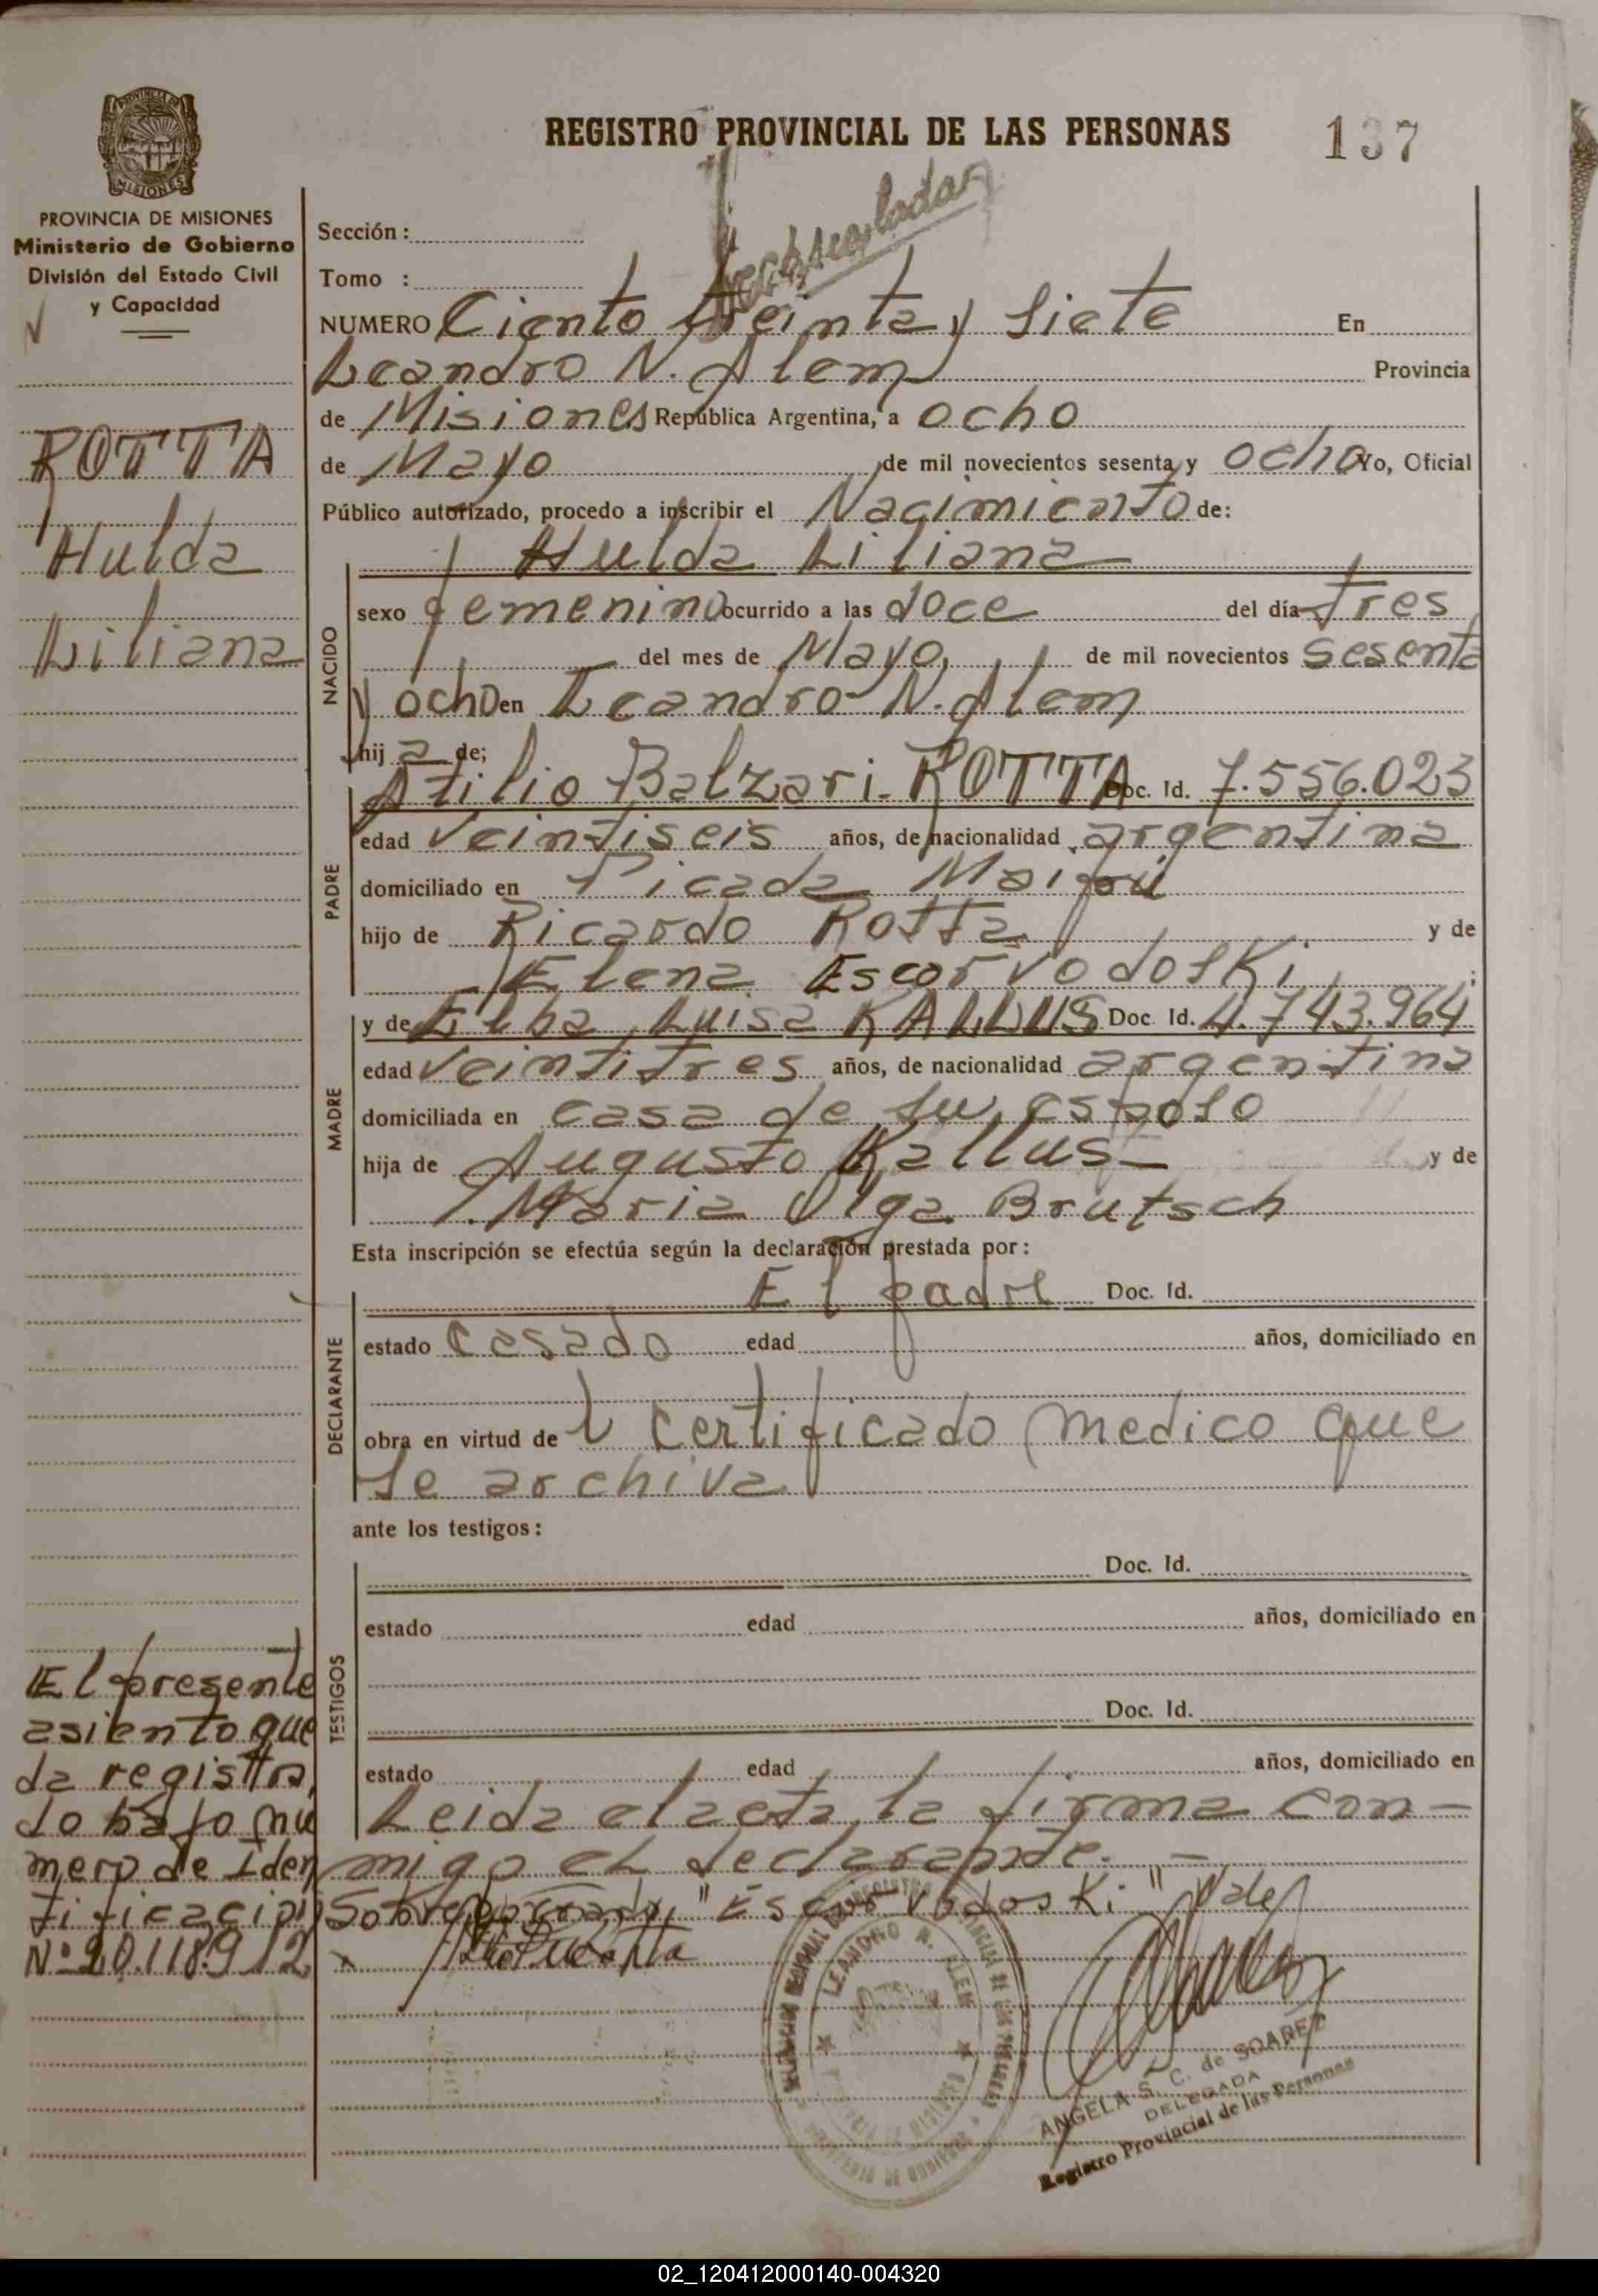 REGISTRO PROVINCIAL DE LAS PERSONAS 137
PROVINCIA DE MISIONES
Ministerio de Gobierno
División del Estado Civil
y Capacidad
ROTTA
Hulda
Liliana
Sección:
Tomo :
NUMERO Ciento treinta y siete En
Leandro N. Alem Provincia
de Misiones República Argentina, a ocho
de Mayo de mil novecientos sesenta y ocho Yo, Oficial
Público autorizado, procedo a inscribir el Nacimiento de:
Hulda Liliana
NACIDO
sexo femenino ocurrido a las doce del día tres
del mes de Mayo, de mil novecientos sesenta
y ocho en Leandro N. Alem
hij a de;
PADRE
Atilio Balzari ROTTA Doc. Id. 7.556.023
edad veintiseis años, de nacionalidad argentina
domiciliado en Picada Maipú
hijo de Ricardo Rotta y de
Elena Escorvodoski;
MADRE
y de Elba Luisa KALLUS Doc. Id. 4.743.964
edad veintitres años, de nacionalidad argentina
domiciliada en casa de su esposo
hija de Augusto Kallus y de
Maria Olga Brutsch
Esta inscripción se efectúa según la declaración prestada por:
DECLARANTE
El padre Doc. Id.
estado casado edad años, domiciliado en
obra en virtud de l certificado medico que
se archiva
ante los testigos:
TESTIGOS
Doc. Id.
estado edad años, domiciliado en
Doc. Id.
estado edad años, domiciliado en
Leida el acta, la firma con-
migo el declarante. -
Sobreborrado, "Escorvodoski" Vale
El presente
asiento que
da registra
do bajo nu
mero de Iden
tificación
Nº 20.118.912
LEANDRO N. ALEM
ANGELA S. C. de SOAREZ
DELEGADA
Registro Provincial de las Personas
02_120412000140-004320